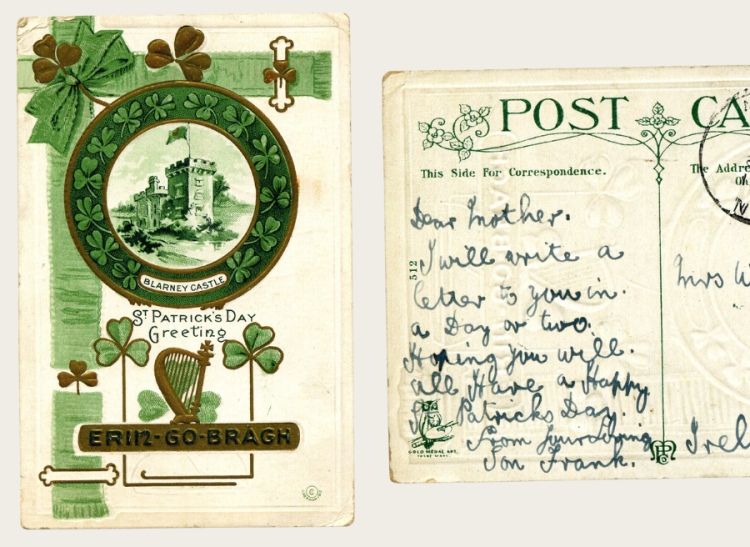 BLARNEY CASTLE
ST PATRICK'S DAY
Greeting
ERIN-GO-BRAGH
POST CA
This Side For Correspondence.
The Addre
512
Dear Mother.
I will write a
letter to you in.
a Day or two.
Hoping you will.
all Have a Happy
St Patricks Day.
From your loving
Son Frank.
Mrs W
Irel
GOLD MEDAL ART
TRADE MARK